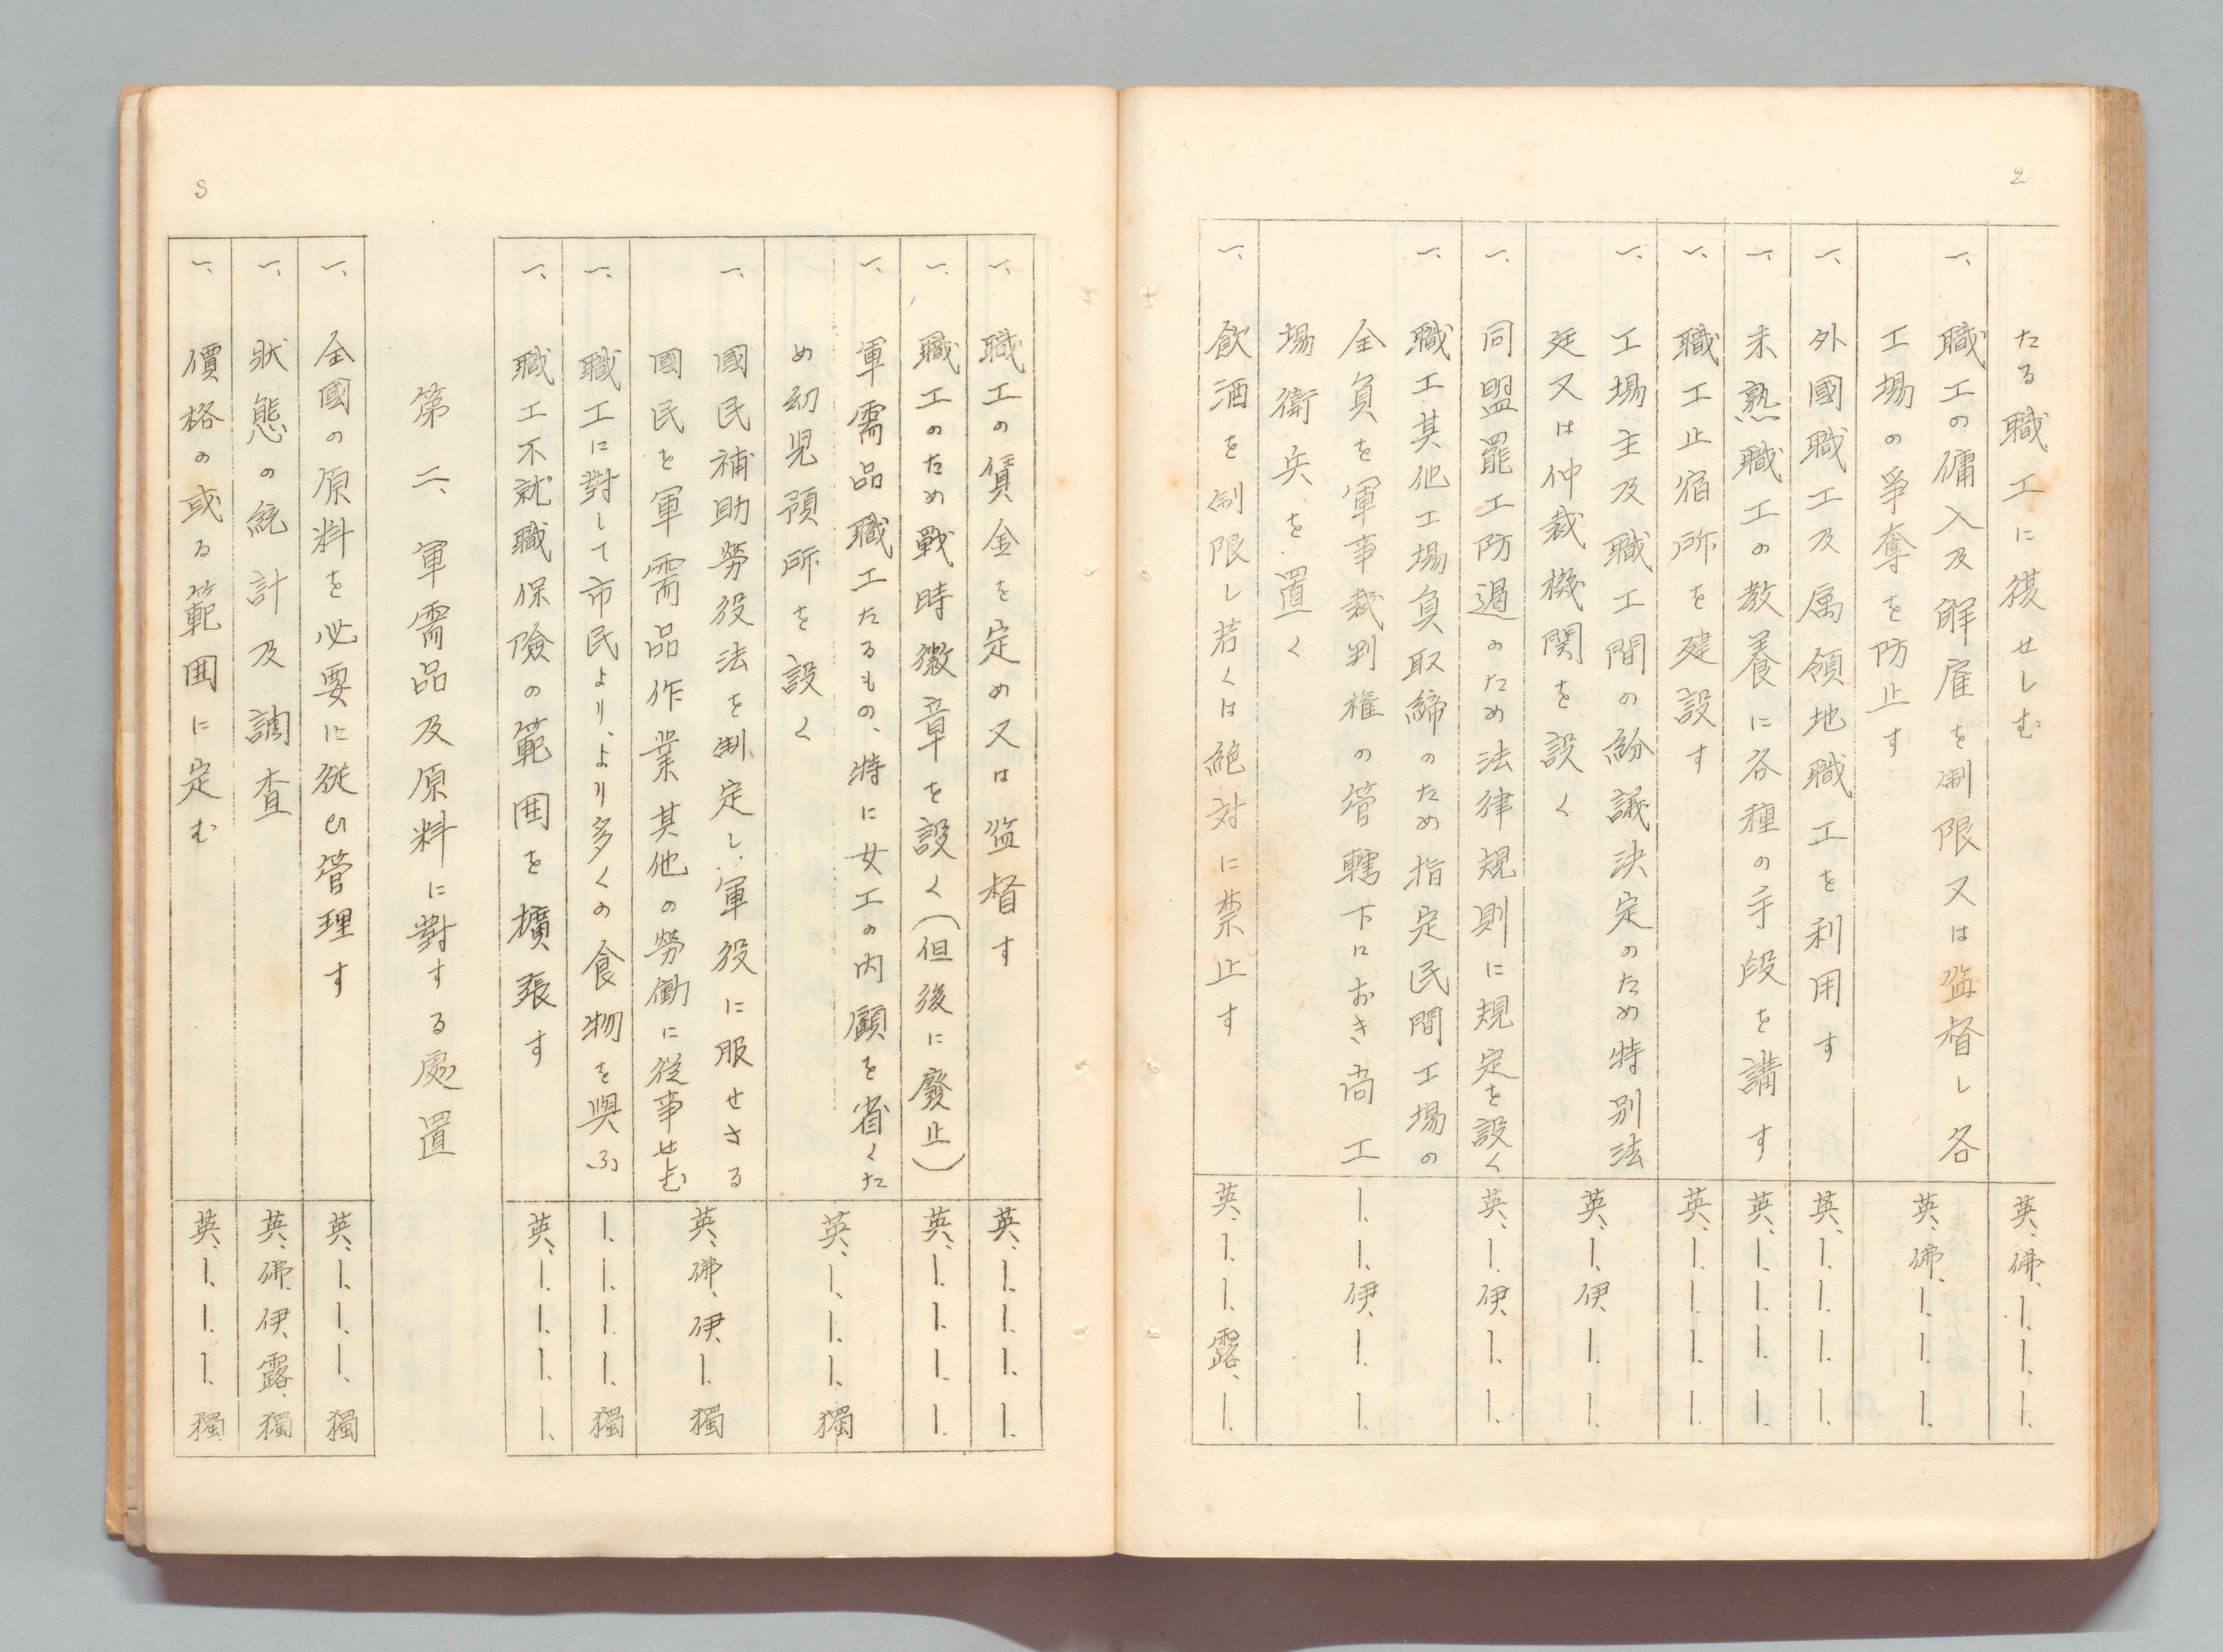 2
たる職工に復せしむ
英、佛、ー、ー、ー、
一、職工の傭入及解雇を制限又は監督し各
工場の爭奪を防止す
英、佛、ー、ー、ー、
一、外國職工及属領地職工を利用す
英、ー、ー、ー、ー、
一、未熟職工の教養に各種の手段を講す
英、ー、ー、ー、ー、
一、職工止宿所を建設す
英、ー、ー、ー、ー、
一、工場主及職工間の紛議決定のため特別法
廷又は仲裁機関を設く
英、ー、伊、ー、ー、
一、同盟罷工防遏のため法律規則に規定を設く
英、ー、伊、ー、ー、
一、職工其他工場負取締のため指定民間工場の
全負を軍事裁判権の管轄下におき尚工
場衛兵を置く
ー、ー、伊、ー、ー、
一、飲酒を制限し若くは絶対に禁止す
英、ー、ー、露、ー、
3
一、職工の賃金を定め又は監督す
英、ー、ー、ー、ー、
一、職工のため戰時徽章を設く(但後に廢止)
英、ー、ー、ー、ー、
一、軍需品職工たるもの、特に女工の内顧を省くた
め幼児預所を設く
英、ー、ー、ー、獨
一、國民補助勞役法を制定し軍役に服せさる
國民を軍需品作業其他の勞働に從事せむ
英、佛、伊、ー、獨
一、職工に對して市民より、より多くの食物を與ふ
ー、ー、ー、ー、獨
一、職工不就職保險の範囲を擴張す
英、ー、ー、ー、ー、
第二、軍需品及原料に對する處置
一、全國の原料を必要に從ひ管理す
英、ー、ー、ー、獨
一、狀態の統計及調査
英、佛、伊、露、獨
一、價格の或る範囲に定む
英、ー、ー、ー、獨